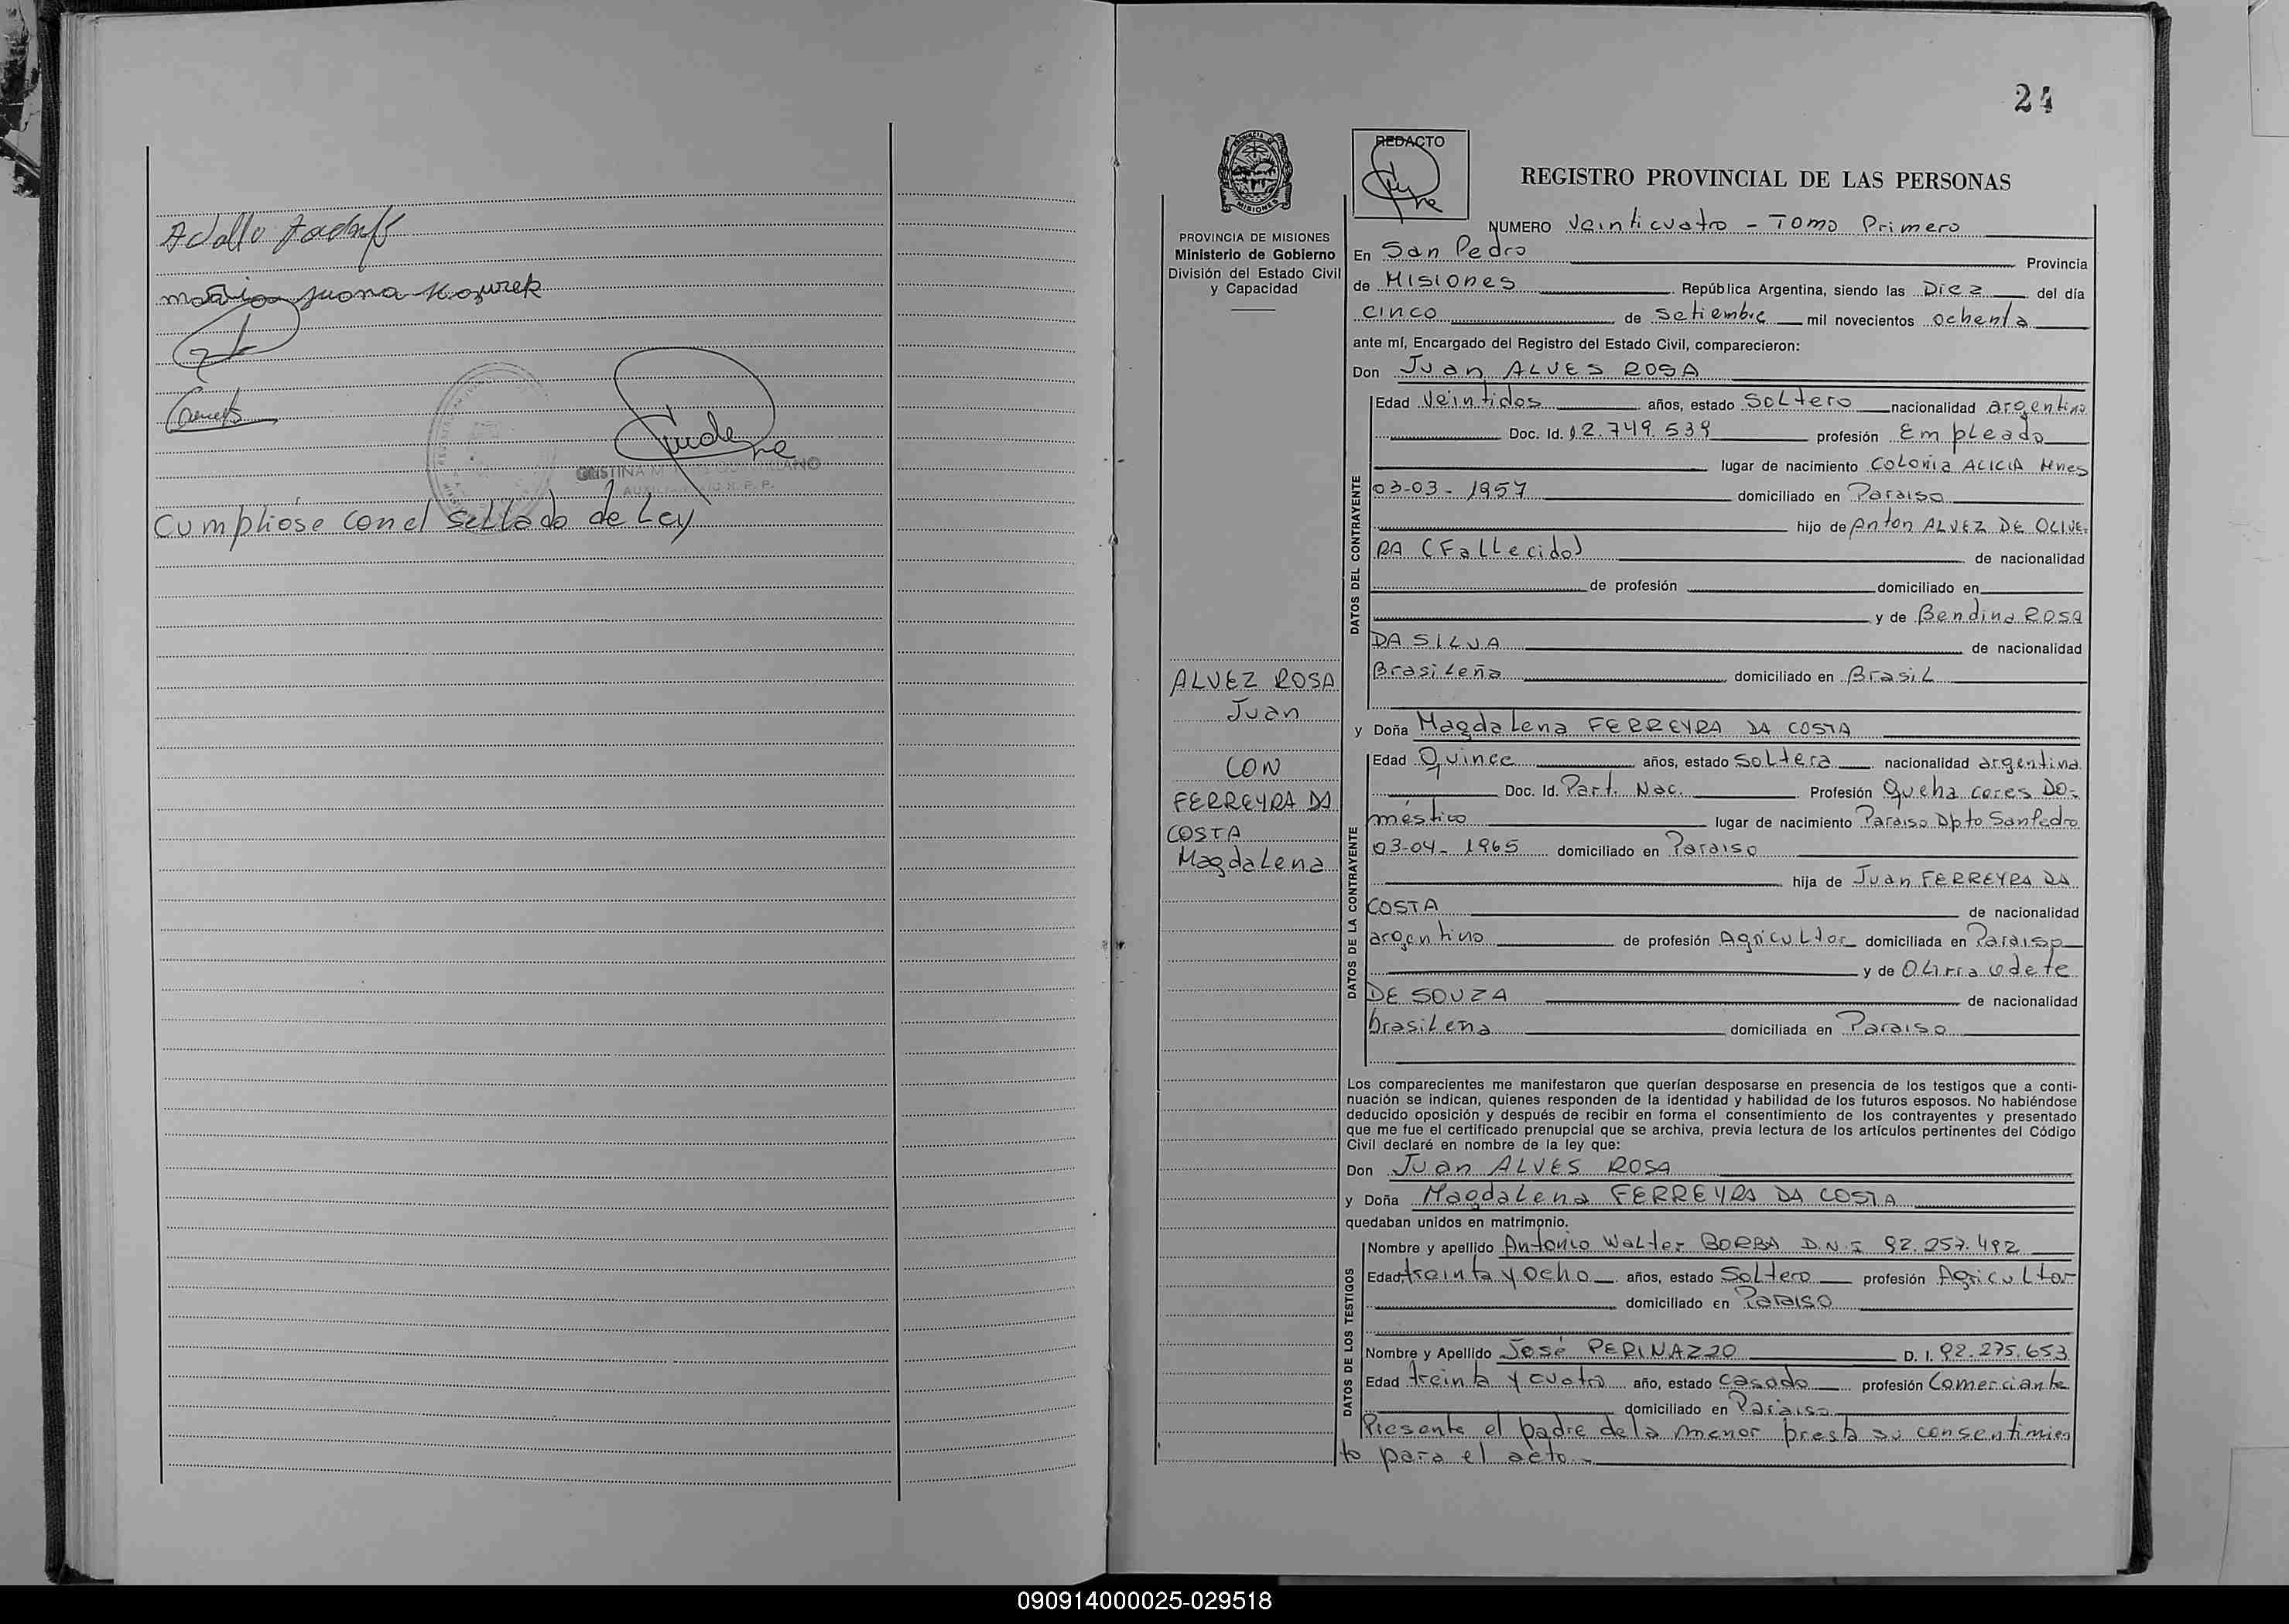 Adolfo
Maria Juana Kozurek
CRISTINA M
Cumpliose con el Sellado de Ley
24
PROVINCIA DE MISIONES
Ministerio de Gobierno
División del Estado Civil
y Capacidad
REDACTO
REGISTRO PROVINCIAL DE LAS PERSONAS
NUMERO Veinticuatro - Tomo Primero
En San Pedro Provincia
de Misiones República Argentina, siendo las Diez del día
cinco de Setiembre mil novecientos ochenta
ante mí, Encargado del Registro del Estado Civil, comparecieron:
Don Juan ALVES ROSA
Edad Veintidos años, estado Soltero nacionalidad argentino
Doc. Id. 12.749.539 profesión Empleado
lugar de nacimiento Colonia ALICIA Mnes
03-03-1957 domiciliado en Paraiso
hijo de Anton ALVEZ DE OLIVE-
RA (Fallecido) de nacionalidad
de profesión domiciliado en
y de Bendina ROSA
DA SILVA de nacionalidad
Brasileña domiciliado en Brasil
DATOS DEL CONTRAYENTE
ALVEZ ROSA
Juan
CON
FERREYRA DA
COSTA
Magdalena
y Doña Magdalena FERREYRA DA COSTA
Edad Quince años, estado Soltera nacionalidad argentina
Doc. Id. Part. Nac. Profesión Queha ceres Do-
méstico lugar de nacimiento Paraiso Dpto San Pedro
03-04-1965 domiciliado en Paraiso
hija de Juan FERREYRA DA
COSTA de nacionalidad
argentino de profesión Agricultor domiciliada en Paraiso
y de Olirria Odete
DE SOUZA de nacionalidad
brasilena domiciliada en Paraiso
DATOS DE LA CONTRAYENTE
Los comparecientes me manifestaron que querían desposarse en presencia de los testigos que a conti-
nuación se indican, quienes responden de la identidad y habilidad de los futuros esposos. No habiéndose
deducido oposición y después de recibir en forma el consentimiento de los contrayentes y presentado
que me fue el certificado prenupcial que se archiva, previa lectura de los artículos pertinentes del Código
Civil declaré en nombre de la ley que:
Don Juan ALVES ROSA
y Doña Magdalena FERREYRA DA COSTA
quedaban unidos en matrimonio.
Nombre y apellido Antonio Walter BORBA D.N.I 92.257.492
Edad treinta y ocho años, estado Soltero profesión Agricultor
domiciliado en Paraiso
Nombre y Apellido José PERINAZZO D. I. 92.275.653
Edad treinta y cuatro año, estado casado profesión Comerciante
domiciliado en Paraiso
DATOS DE LOS TESTIGOS
Presente el padre de la menor presta su consentimien
to para el acto.-
090914000025-029518